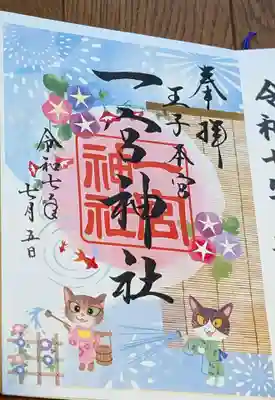 令和七
奉拝
王子本宮
一宮神社
一宮
神社
令和七年
七月五日